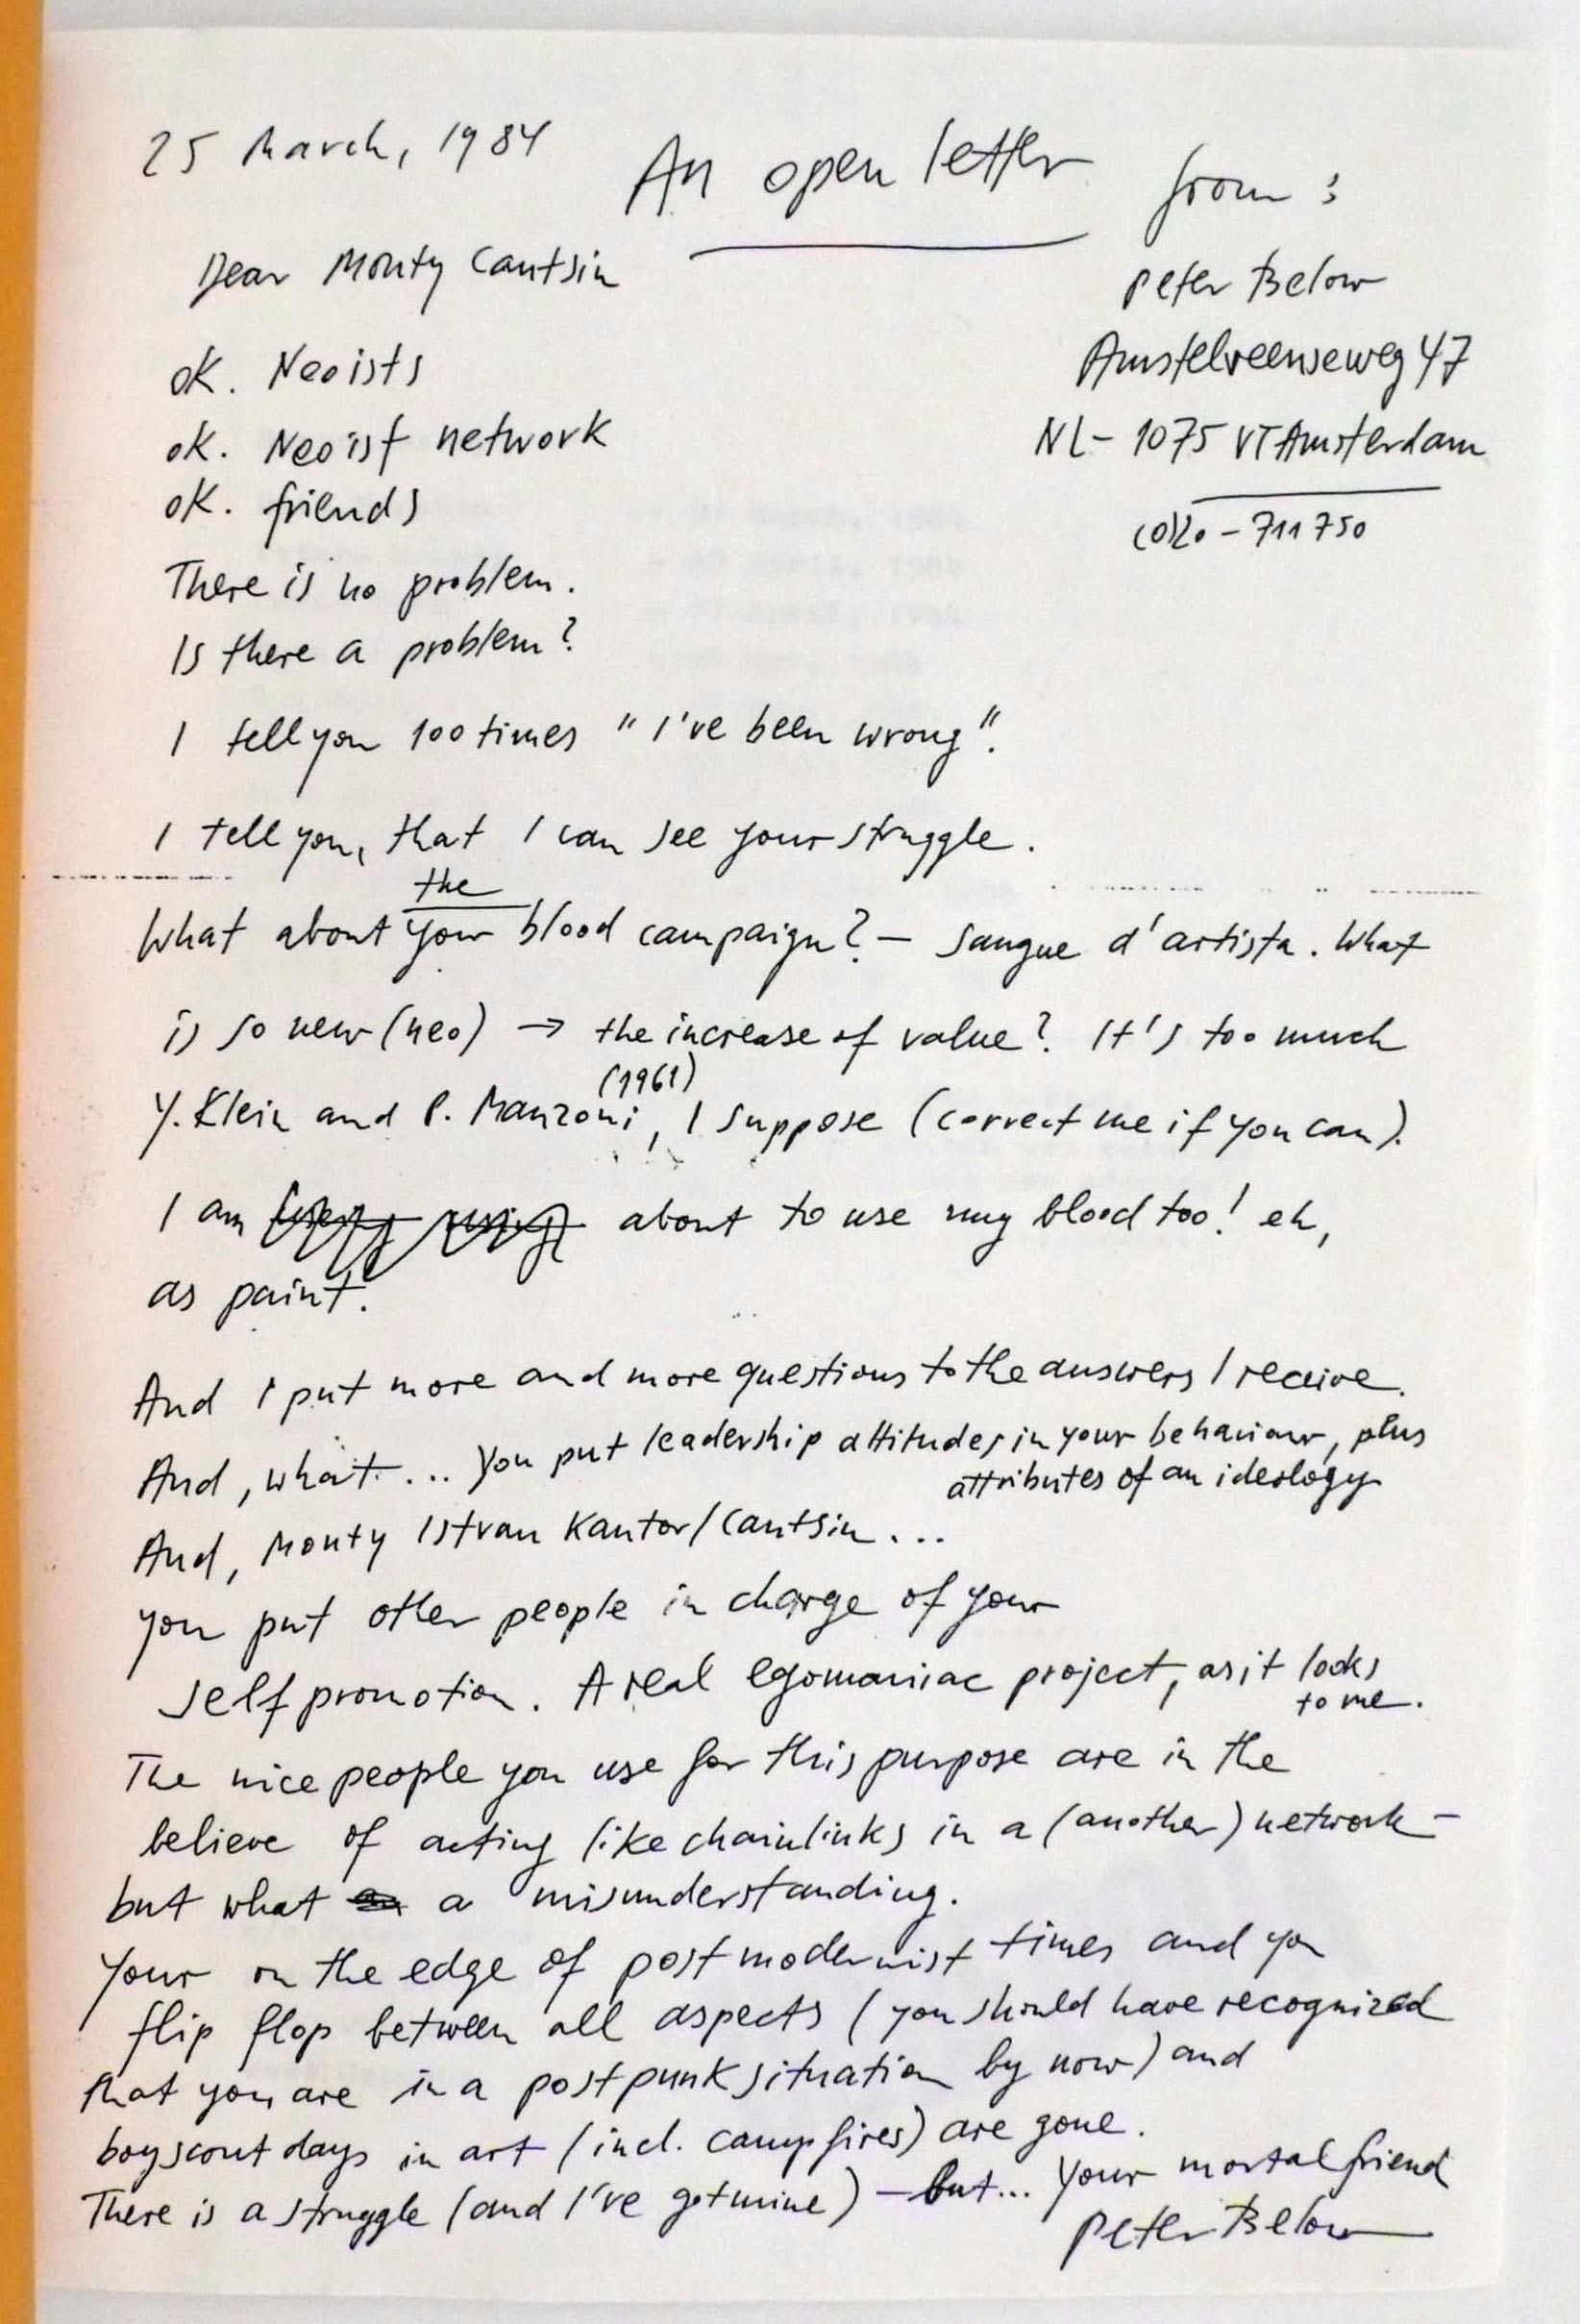 25 March, 1984
An open letter
from:
Peter Below
Amstelveenseweg 47
NL- 1075 VT Amsterdam
(0)20 - 711 750
Dear Monty Cantsin
OK. Neoists
OK. Neoist network
OK. friends
There is no problem.
Is there a problem?
I tell you 100 times "I've been wrong".
I tell you, that I can see your struggle.
the
What about your blood campaign? — Sangue d'artista. What
is so new (neo) → the increase of value? It's too much
(1961)
Y. Klein and P. Manzoni, I suppose (correct me if you can).
I am about to use my blood too! eh,
as paint.
And I put more and more questions to the answers I receive.
And, what... You put leadership attitudes in your behaviour, plus
attributes of an ideology
And, Monty Istvan Kantor/Cantsin...
you put other people in charge of your
self promotion. A real egomaniac project, as it looks
to me.
The nice people you use for this purpose are in the
believe of acting like chainlinks in a (another) network —
but what a misunderstanding.
Your on the edge of postmodernist times and you
flip flop between all aspects (you should have recognized
that you are in a postpunk situation by now) and
boyscout days in art (incl. campfires) are gone.
There is a struggle (and I've got mine) — but... Your mortal friend
Peter Below